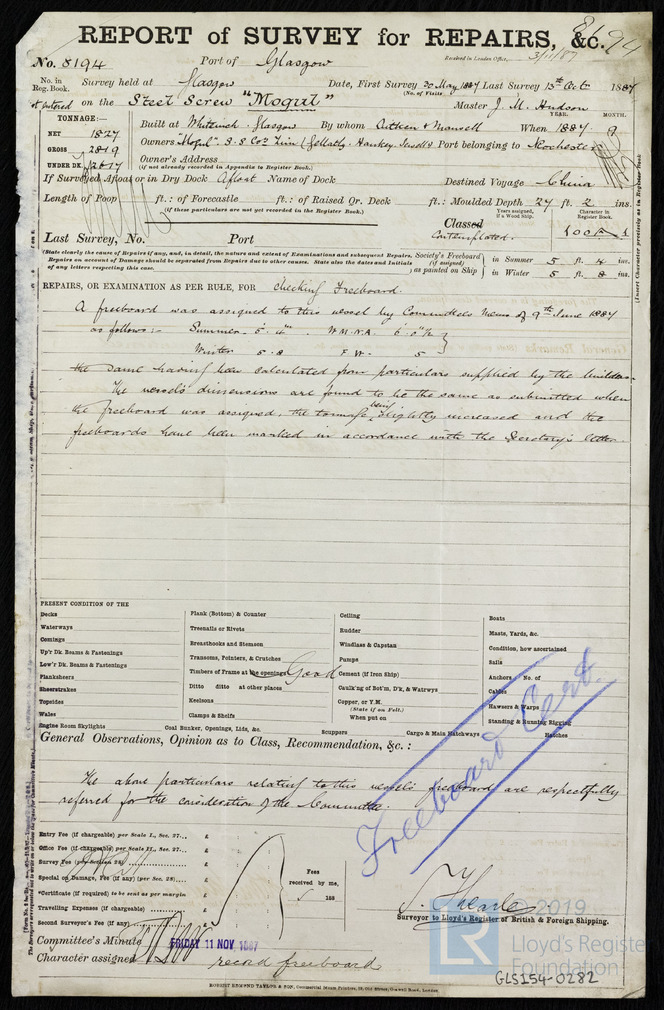 REPORT of SURVEY for REPAIRS, &c.
No. 8194 Port of Glasgow Received in London Office, 3/11/87
No. in Reg. Book. Survey held at Glasgow Date, First Survey 20 May 1887 Last Survey 13th Oct 1887
(No. of Visits
on the Steel Screw "Mogul" Master J. M. Hudson
TONNAGE:— YEAR. MONTH.
NET 1827 Built at Whiteinch Glasgow By whom Aitken & Mansell When 1887
GROSS Owners "Mogul" S.S. Co Port belonging to Rochester
UNDER DK. Owner's Address
(if not already recorded in Appendix to Register Book.)
If Surveyed Afloat or in Dry Dock Afloat Name of Dock Destined Voyage China
Length of Poop ft.: of Forecastle ft.: of Raised Qr. Deck ft.: Moulded Depth 27 ft. 2 ins.
(If these particulars are not yet recorded in the Register Book.)
Years assigned, if a Wood Ship. Character in Register Book.
Classed Contemplated. 100A1
Last Survey, No. Port
(State clearly the cause of Repairs if any, and, in detail, the nature and extent of Examinations and subsequent Repairs.
Repairs on account of Damage should be separated from Repairs due to other causes. State also the dates and Initials
of any letters respecting this case.
Society's Freeboard (if assigned) as painted on Ship
in Summer 5 ft. 4 ins.
in Winter 5 ft. 8 ins.
(Insert Character precisely as in Register Book
REPAIRS, OR EXAMINATION AS PER RULE, FOR checking Freeboard.
A freeboard was assigned to this vessel by Committee's Memo of 9th June 1887
as follows:- Summer 5' 4" W.N.A. 6' 0"
Winter 5. 8 F.W. 5
the same having been calculated from particulars supplied by the builders.
The vessel's dimensions are found to be the same as submitted when
the freeboard was assigned, the tonnage being slightly increased and the
freeboards have been marked in accordance with the Secretary's letter.
PRESENT CONDITION OF THE
Decks
Waterways
Comings
Up'r Dk. Beams & Fastenings
Low'r Dk. Beams & Fastenings
Planksheers
Sheerstrakes
Topsides
Wales
Engine Room Skylights
Plank (Bottom) & Counter
Treenails or Rivets
Breasthooks and Stemson
Transoms, Pointers, & Crutches
Timbers of Frame at the openings Good
Ditto ditto at other places
Keelsons
Clamps & Shelfs
Coal Bunker, Openings, Lids, &c.
Ceiling
Rudder
Windlass & Capstan
Pumps
Cement (if Iron Ship)
Caulk'ng of Bot'm, D'k, & Watrwys
Copper, or Y.M.
(State if on Felt.)
When put on
Scuppers
Cargo & Main Hatchways
Boats
Masts, Yards, &c.
Condition, how ascertained
Sails
Anchors No. of
Cables
Hawsers & Warps
Standing & Running Rigging
Hatches
General Observations, Opinion as to Class, Recommendation, &c.:
The above particulars relating to this vessel's freeboard are respectfully
referred for the consideration of the Committee.
Freeboard Cert.
Entry Fee (if chargeable) per Scale I., Sec. 27... £
Office Fee (if chargeable) per Scale II., Sec. 27... £
Survey Fee (per Section 28) £
Special on Damage, Fee (if any) (per Sec. 28) £
*Certificate (if required) to be sent as per margin
Travelling Expenses (if chargeable) £
Second Surveyor's Fee (if any) £
Fees received by me, 188
Surveyor to Lloyd's Register of British & Foreign Shipping.
Committee's Minute FRIDAY 11 NOV 1887
Character assigned record freeboard
ROBERT EDMUND TAYLOR & SON, Commercial Steam Printers, 19, Old Street, Goswell Road, London.
© 2019
LR
Lloyd's Register
Foundation
GLS154-0282